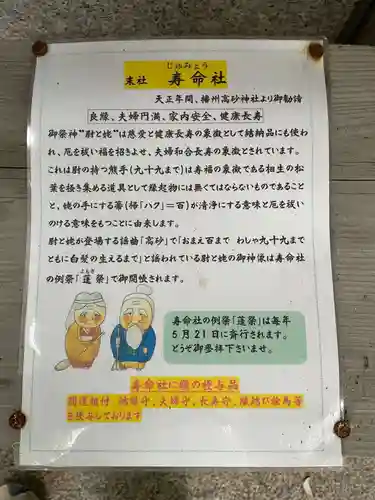 じゅみょう
末社 寿命社
天正年間、播州高砂神社より御勧請
良縁、夫婦円満、家内安全、健康長寿
御祭神"尉と姥"は慈愛と健康長寿の象徴として結納品にも使わ
れ、厄を祓い福を招きよせ、夫婦和合長寿の象徴とされています。
これは尉の持つ熊手(九十九まで)は寿福の象徴である相生の松
葉を掻き集める道具として縁起物には無くてはならないものであること
と、姥の手にする箒(帚「ハク」=百)が清浄にする意味と厄を祓い
のける意味をもつことに由来します。
尉と姥が登場する謡曲「高砂」で「おまえ百まで わしゃ九十九まで
ともに白髪の生えるまで」と謡われている尉と姥の御神像は寿命社
よもぎ
の例祭「蓬祭」で御開帳されます。
寿命社の例祭「蓬祭」は毎年
5月21日に斎行されます。
どうぞ御参拝下さいませ。
寿命社に縁の授与品
開運根付 鳩鈴守、夫婦守、長寿守、縁結び絵馬等
を授与しております